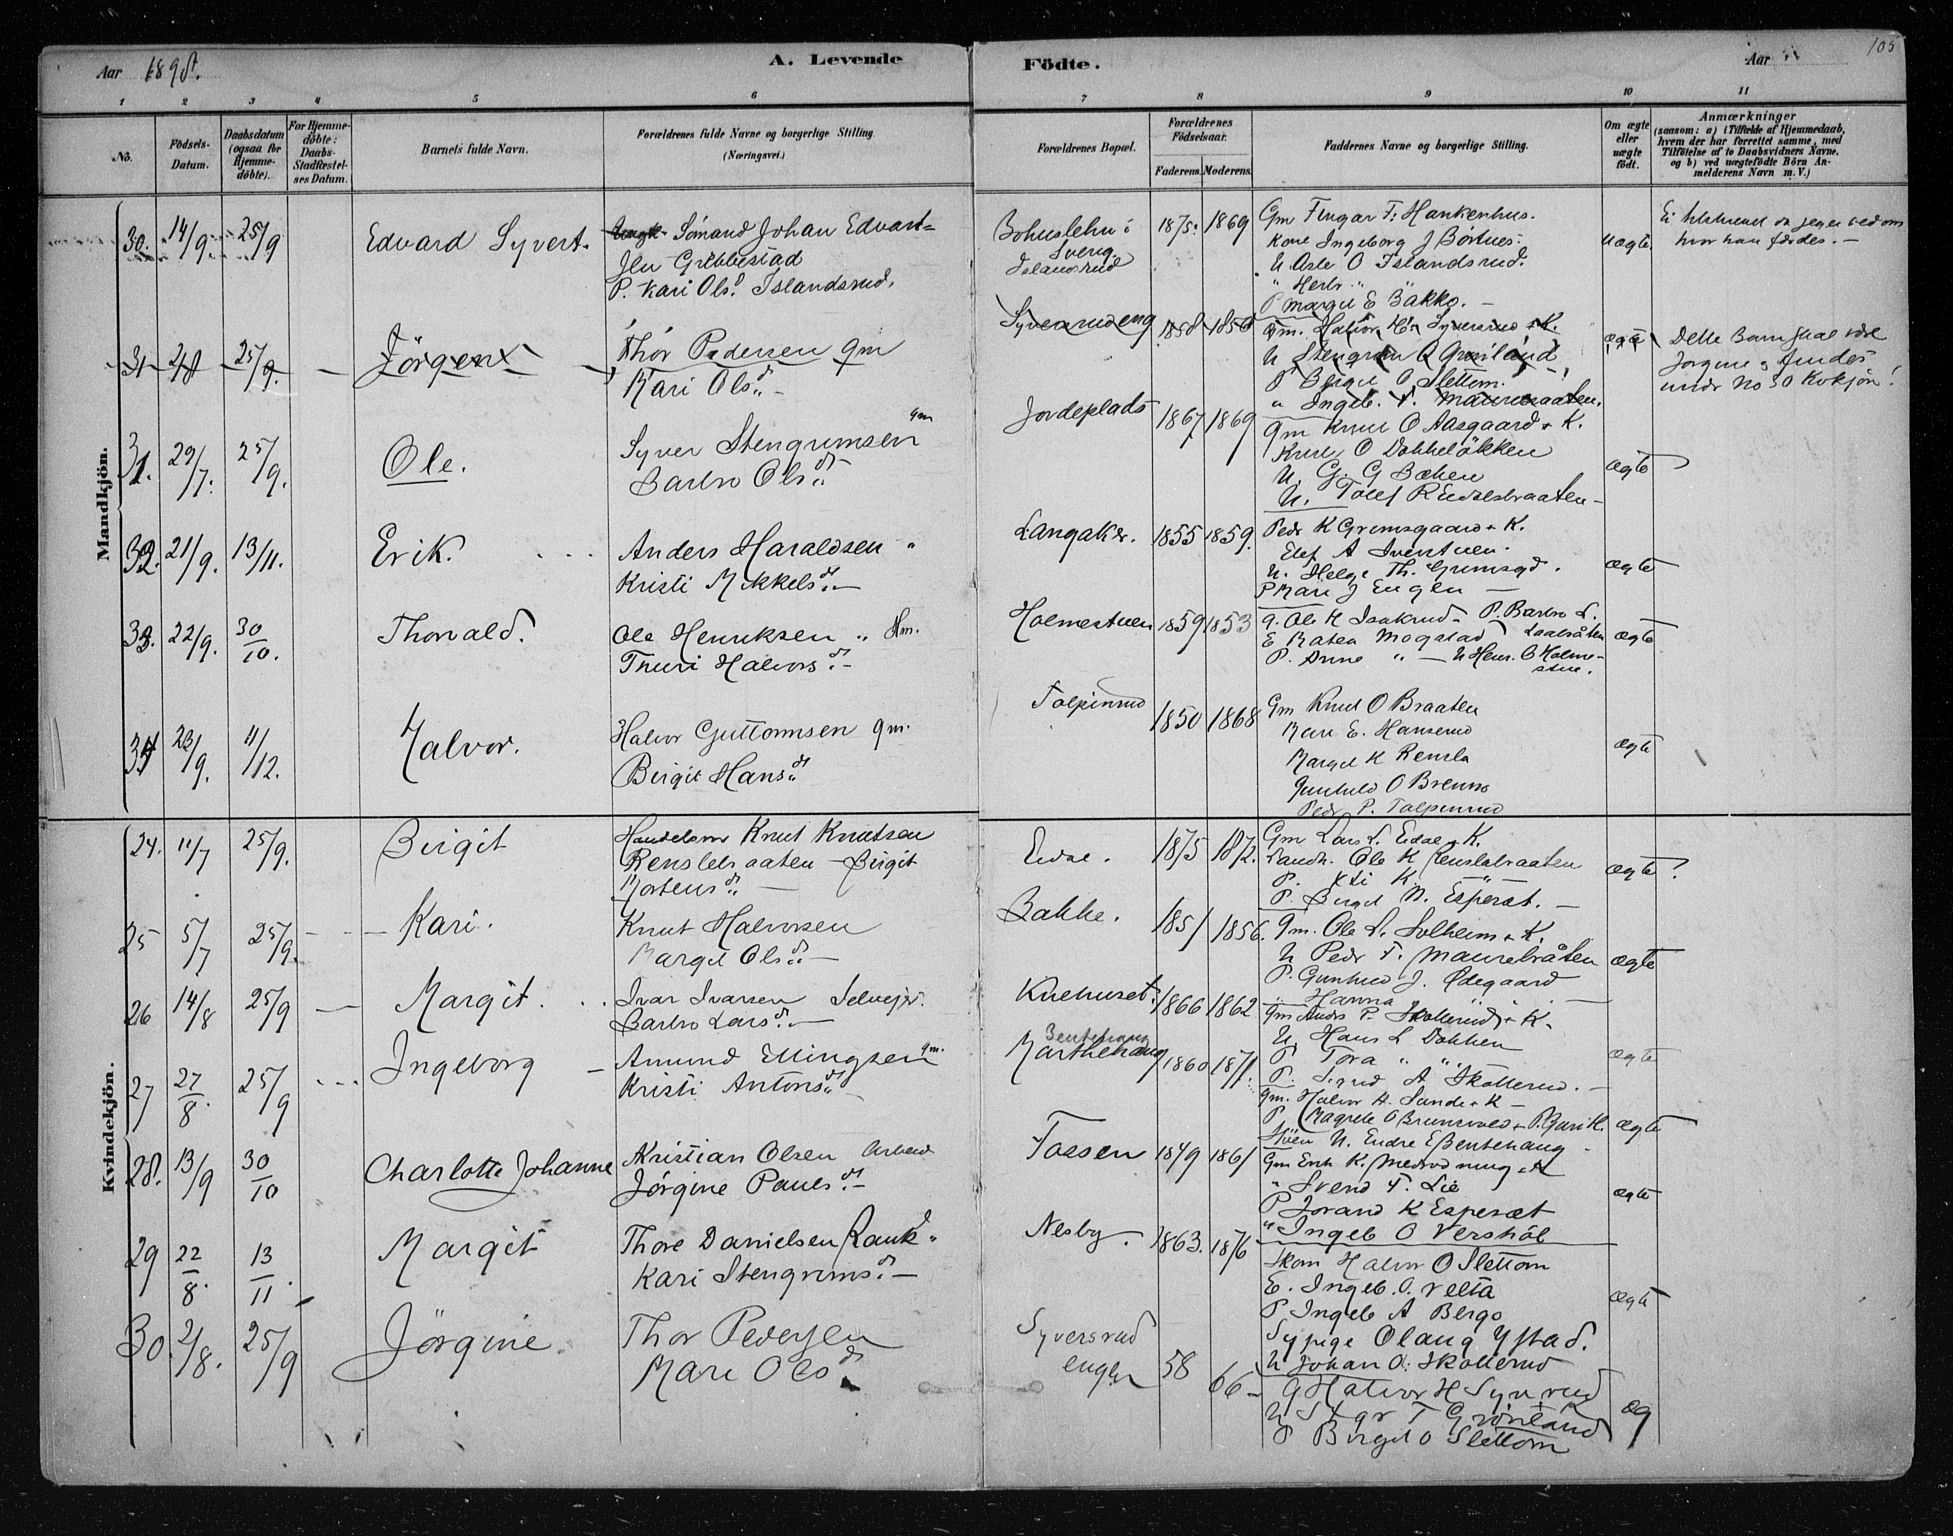 Aar 1898.
A. Levende
Födte.
Aar
105
1 2 3 4 5 6
7 8 9 10 11
No.
Födsels-Datum.
Daabsdatum (ogsaa for Hjemme-döbte).
For Hjemme-döbte: Daabs-Stadfæstel-ses Datum.
Barnets fulde Navn.
Forældrenes fulde Navne og borgerlige Stilling.
(Næringsvei.)
Forældrenes Bopæl.
Forældrenes Födselsaar.
Faderens. Moderens.
Faddernes Navne og borgerlige Stilling.
Om ægte eller uægte födt.
Anmærkninger
(saasom: a) i Tilfælde af Hjemmedaab, hvem der har forrettet samme, med Tilföielse af to Daabsvidners Navne, og b) ved uægtefödte Börn An-melderens Navn m. V.)
Mandkjön.
30. 14/9. 25/9 Edvard Syvert. Sömand Johan Edvart=
Grebbestad
P. Kari Olsd. Islandsrud.
Bohuslehn i
Sverig.
Islandsrud
1875. 1869
Gm Fingar T. Hankenhus.
Kone Ingeborg J Börtnes.
U. Asle O Islandsrud.
" Herbr "
P Margit E Bakko. —
uægte
hvor han færdes. —
31 2/8 25/9. Jörgen
Thor Pedersen gm
Kari Olsd. —
Syversrudeng 1858 1856
gm. Halvor H. Syversrud + K.
U Stengrim O Grönland
P Birgit O Slettom.
" Ingeb. T. Maurebraaten.
ægte
Dette Barn skal være
Jörgine, findes
under No 30 Kvkjön!
31. 29/7. 25/9. Ole.
Syver Stengrimsen gm
Barbro Olsd.
Jordeplads 1867 1869
gm Knut O Aasgaard + K.
Knut O Dokkelökken
U. G. G Bæhen
U. Tollef R Endelsbraaten —
ægte
32. 21/9. 13/11. Erik.
Anders Haraldsen "
Kristi Mikkelsd. —
Langaker. 1855 1859.
Peder K Grimsgaard + K.
Elef A Iverstuen.
U. Helge Th. Grimsgd.
P Mari J Engen —
ægte
33. 22/9. 30/10. Thorvald.
Ole Henriksen " Hm.
Thuri Halvorsd. —
Holmestuen 1859 1853
g. Ole H Isakrud – P. Barbro L.
E Baten Mogstad
P. Anne " — U Henr. O Holme-
stue.
ægte
34 23/9. 11/12. Halvor.
Halvor Guttormsen gm.
Birgit Hansd.
Tolpinrud 1850 1868
Gm Knut O Braaten
Kari E. Hanserud
Margit K Rensla
Gunhild O Brenno
Peder P. Tolpinrud
ægte
Kvindekjön.
24. 11/7 25/9. Birgit
Handelsm Knut Knutsen
Renslebraaten – Birgit
Mortensd. —
Eidal. 1875 1872.
Gm Lars L. Eidal + K.
Landh. Ole K Renslebraaten
P. Kti K. "
P. Birgit N. Esperæt. —
ægte ?
25 5/7 25/9. Kari.
Knut Halvorsen
Margit Olsd. —
Bakke. 1851 1856.
gm. Ole L. Solheim + K.
U Peder T. Maurebråten
P. Gunhild J. Ødegaard
" Hanna
ægte
26 14/8 25/9 Margit.
Ivar Ivarsen Selvejer.
Barbro Larsd. —
Knehuset. 1866 1862
Gm Anders P. Skollerud + K.
U. Hans L Dokken
P Tora " "
P. Sigrid A Skollerud. —
ægte
27 27/8. 25/9 Ingeborg
Amund Ellingsen gm.
Kristi Antonsd. —
Bentehaug
Marthehaug 1860 1871.
gm. Halvor H. Sande + K —
P. Magrete O Brunsvold + P. Guri H.
Stöen U. Endre E Bentehaug
ægte
28. 13/9 30/10 Charlotte Johanne
Kristian Olsen Arbeid
Jörgine Paulsd. —
Foesen 1849 1861
Gm Erik K. Medvodning
" Svend T. Lie
P Jorand K Esperæt
" Ingeb O Vershöl
ægte
29 22/8. 13/11. Margit
Thore Danielsen Rank.
Kari Stengrimsd. —
Nesby. 1863. 1876
Skom Halvor O Slettom
E. Ingeb. O. Velta
P Ingeb A Bergo
Sypige Olaug Ystad.
U Johan O. Skollerud
ægte
30. 2/8. 25/9 Jörgine
Thor Pedersen
Mari Olsd
Syversrud
engen 58 66 –
G Halvor H Syvrud
U T Grönland
P Birgit O Slettom
æg